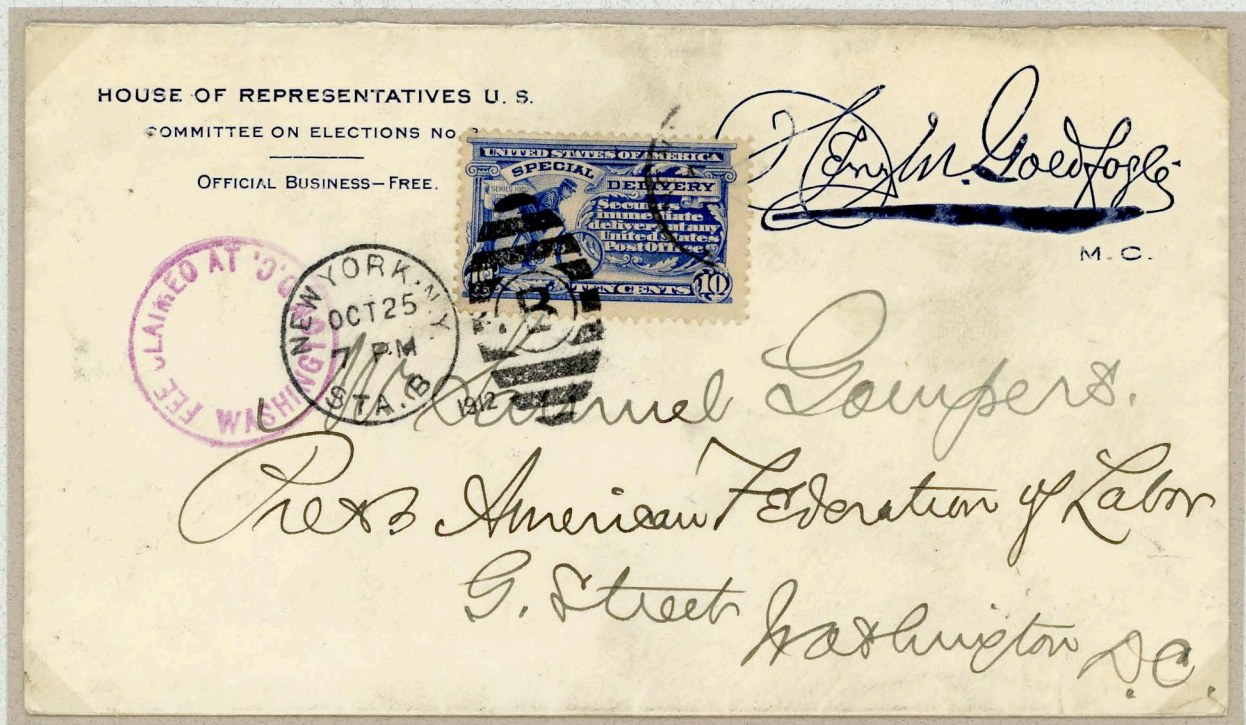 HOUSE OF REPRESENTATIVES U. S.
COMMITTEE ON ELECTIONS No.
OFFICIAL BUSINESS—FREE.
Henry M. Goldfogle
M. C.
UNITED STATES OF AMERICA
SPECIAL DELIVERY
SERIES 1902
Secures
immediate
delivery at any
United States
Post Office
TEN CENTS 10
FEE CLAIMED AT 'O'
WASHINGTON
NEW YORK, N.Y.
OCT 25
7 PM
STA. B
1912
Mr Samuel Gompers.
Prest American Federation of Labor
G. Street
Washington D.C.